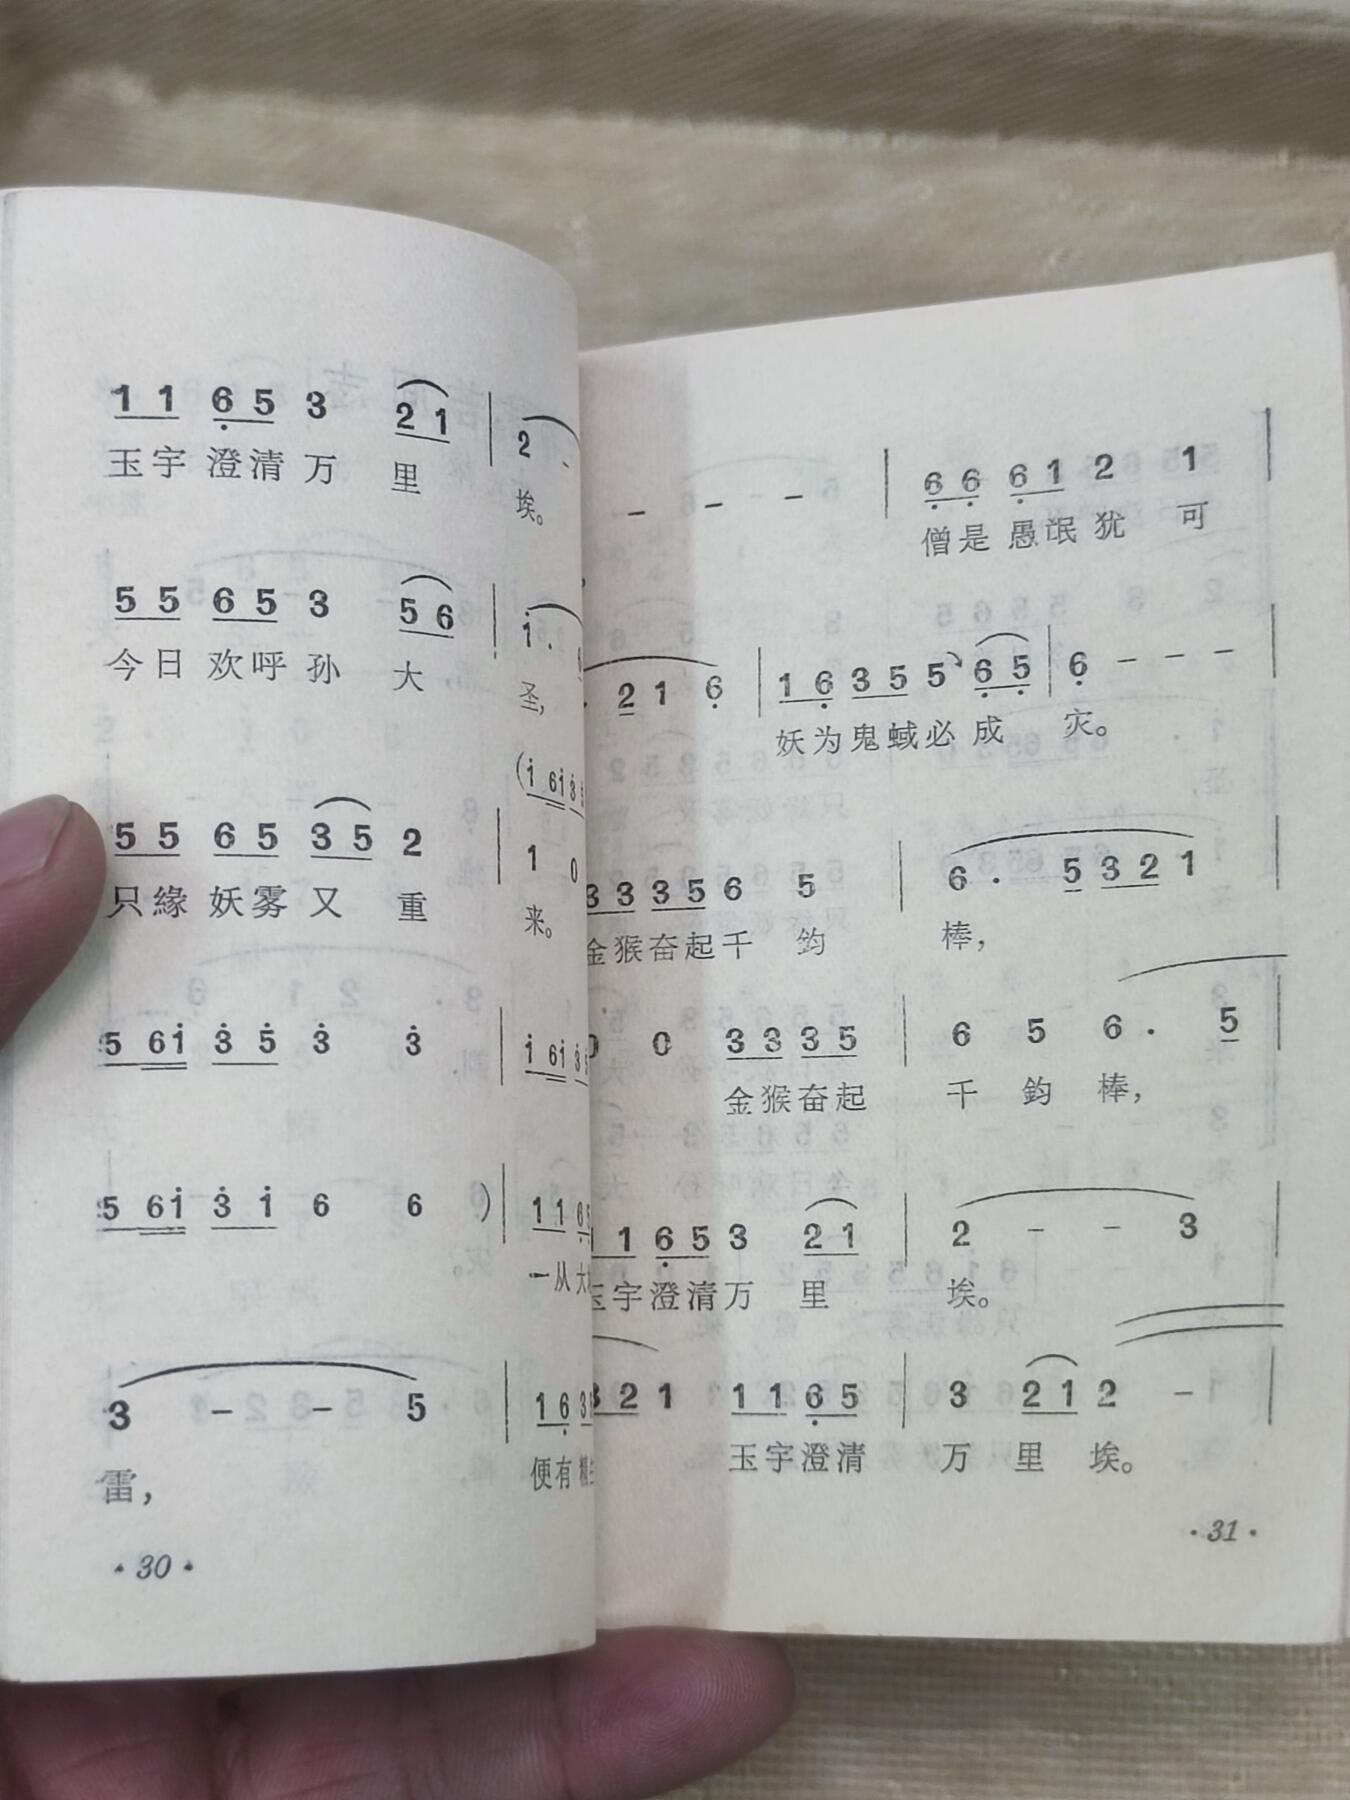 1 1 6 5 3 2 1 | 2 -
玉宇 澄清 万 里 埃。
5 5 6 5 3 5 6 | i ·
今日 欢呼 孙 大 圣,
(i 6i 3
5 5 6 5 3 5 2 | 1 0
只緣 妖雾 又 重 来。
5 6i 3 5 3 3 | i 6i 3
5 6i 3 i 6 6 ) | 1 1 6 5
一从大
3 - - 5 | 1 6 3
雷, 便有精生
· 30 ·
- - - | 6 6 6 1 2 1 |
僧是 愚氓 犹 可
2 1 6 | 1 6 3 5 5 6 5 | 6 - - - |
妖为鬼蜮必 成 灾。
3 3 3 5 6 5 | 6 · 5 3 2 1 |
金猴奋起千 鈞 棒,
0 0 3 3 3 5 | 6 5 6 · 5 |
金猴奋起 千 鈞 棒,
1 6 5 3 2 1 | 2 - - 3 |
玉宇澄清万 里 埃。
3 2 1 1 1 6 5 | 3 2 1 2 - |
玉宇澄清 万 里 埃。
· 31 ·